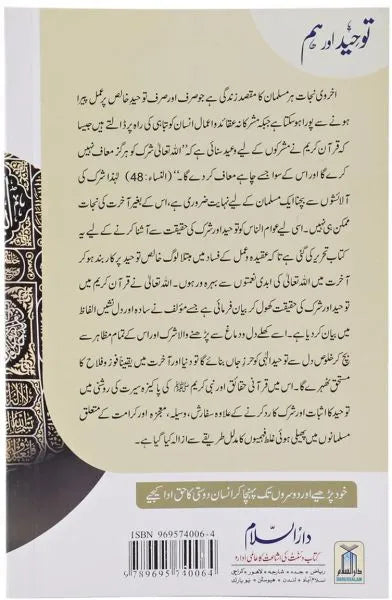 توحید اور ہم
اخروی نجات ہر مسلمان کا مقصد زندگی ہے جو صرف اور صرف توحید خالص پر عمل پیرا
ہونے سے پورا ہو سکتا ہے جبکہ مشرکانہ عقائد و اعمال انسان کو تباہی کی راہ پر ڈالتے ہیں جیسا
کہ قرآن کریم نے مشرکوں کے لیے وعید سنائی ہے کہ "اللہ تعالیٰ شرک کو ہرگز معاف نہیں
کرے گا اور اس کے سوا جسے چاہے معاف کر دے گا۔" (النساء:48) لہٰذا شرک کی
آلائشوں سے بچنا ایک مسلمان کے لیے نہایت ضروری ہے، اس کے بغیر آخرت کی نجات
ممکن ہی نہیں۔ اسی لیے عوام الناس کو توحید اور شرک کی حقیقت سے آشنا کرنے کے لیے یہ
کتاب تحریر کی گئی ہے تاکہ عقیدہ و عمل کے فساد میں مبتلا لوگ خالص توحید پر کاربند ہو کر
آخرت میں اللہ تعالیٰ کی ابدی نعمتوں سے بہرہ ور ہوں۔ اللہ تعالیٰ نے قرآن کریم میں
توحید اور شرک کی حقیقت کھول کر بیان فرمائی ہے جسے مؤلف نے سادہ اور دل نشیں الفاظ
میں بیان کر دیا ہے۔ اسے کھلے دل و دماغ سے پڑھنے والا شرک اور اس کے تمام مظاہر سے
بچ کر خلوص دل سے توحید الٰہی کو حرز جاں بنائے گا تو دنیا اور آخرت میں یقیناً فوز و فلاح کا
مستحق ٹھہرے گا۔ اس میں قرآنی حقائق اور نبی کریم ﷺ کی پاکیزہ سیرت کی روشنی میں
توحید کا اثبات اور شرک کا رد کرنے کے علاوہ سفارش، وسیلہ، معجزہ اور کرامت کے متعلق
مسلمانوں میں پھیلی ہوئی غلط فہمیوں کا مدلل طریقے سے ازالہ کیا گیا ہے۔
خود پڑھیے اور دوسروں تک پہنچا کر انسان دوستی کا حق ادا کیجیے
ISBN 969574006-4
9 789695 740064
دارالسلام
کتاب و سنت کی اشاعت کا عالمی ادارہ
ریاض • جدہ • شارجہ • لاہور • کراچی
اسلام آباد • لندن • ہیوسٹن • نیو یارک
دارالسلام
DARUSSALAM